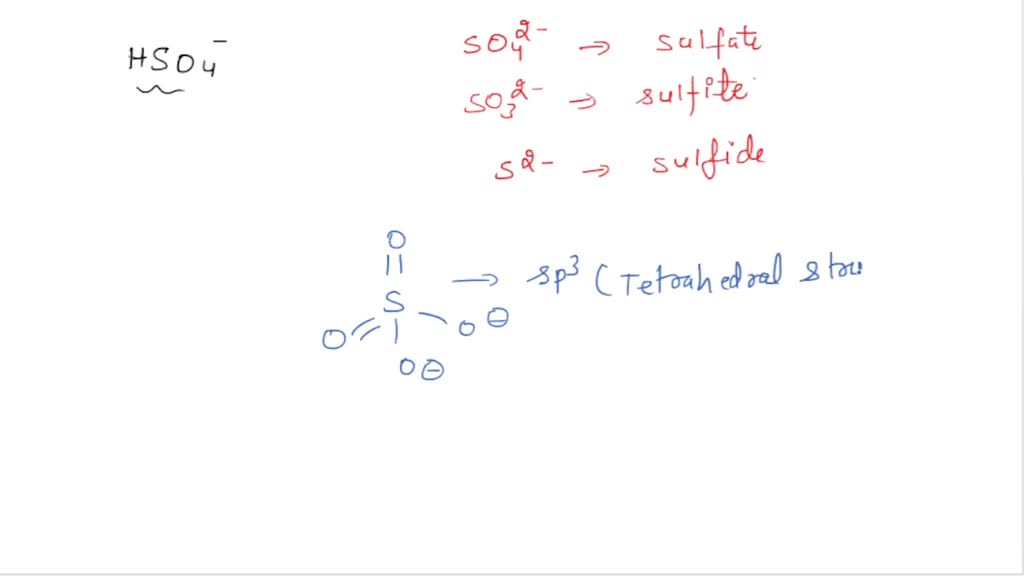 HSO₄⁻
SO₄²⁻ → sulfate
SO₃²⁻ → sulfite
S²⁻ → sulfide
O
S → sp³ (Tetrahedral stru
O O ⊖
O ⊖